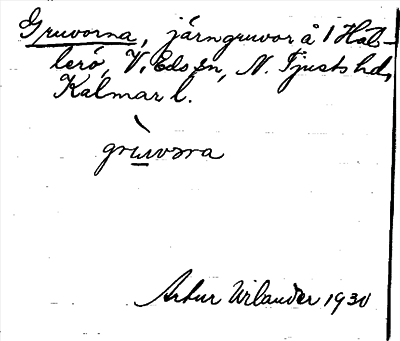 Gruvorna, järngruvor å 1 Häls-
lerö, V. Eds sn, N. Tjusts hd,
Kalmar l.
grùvorna
Artur Wilander 1930